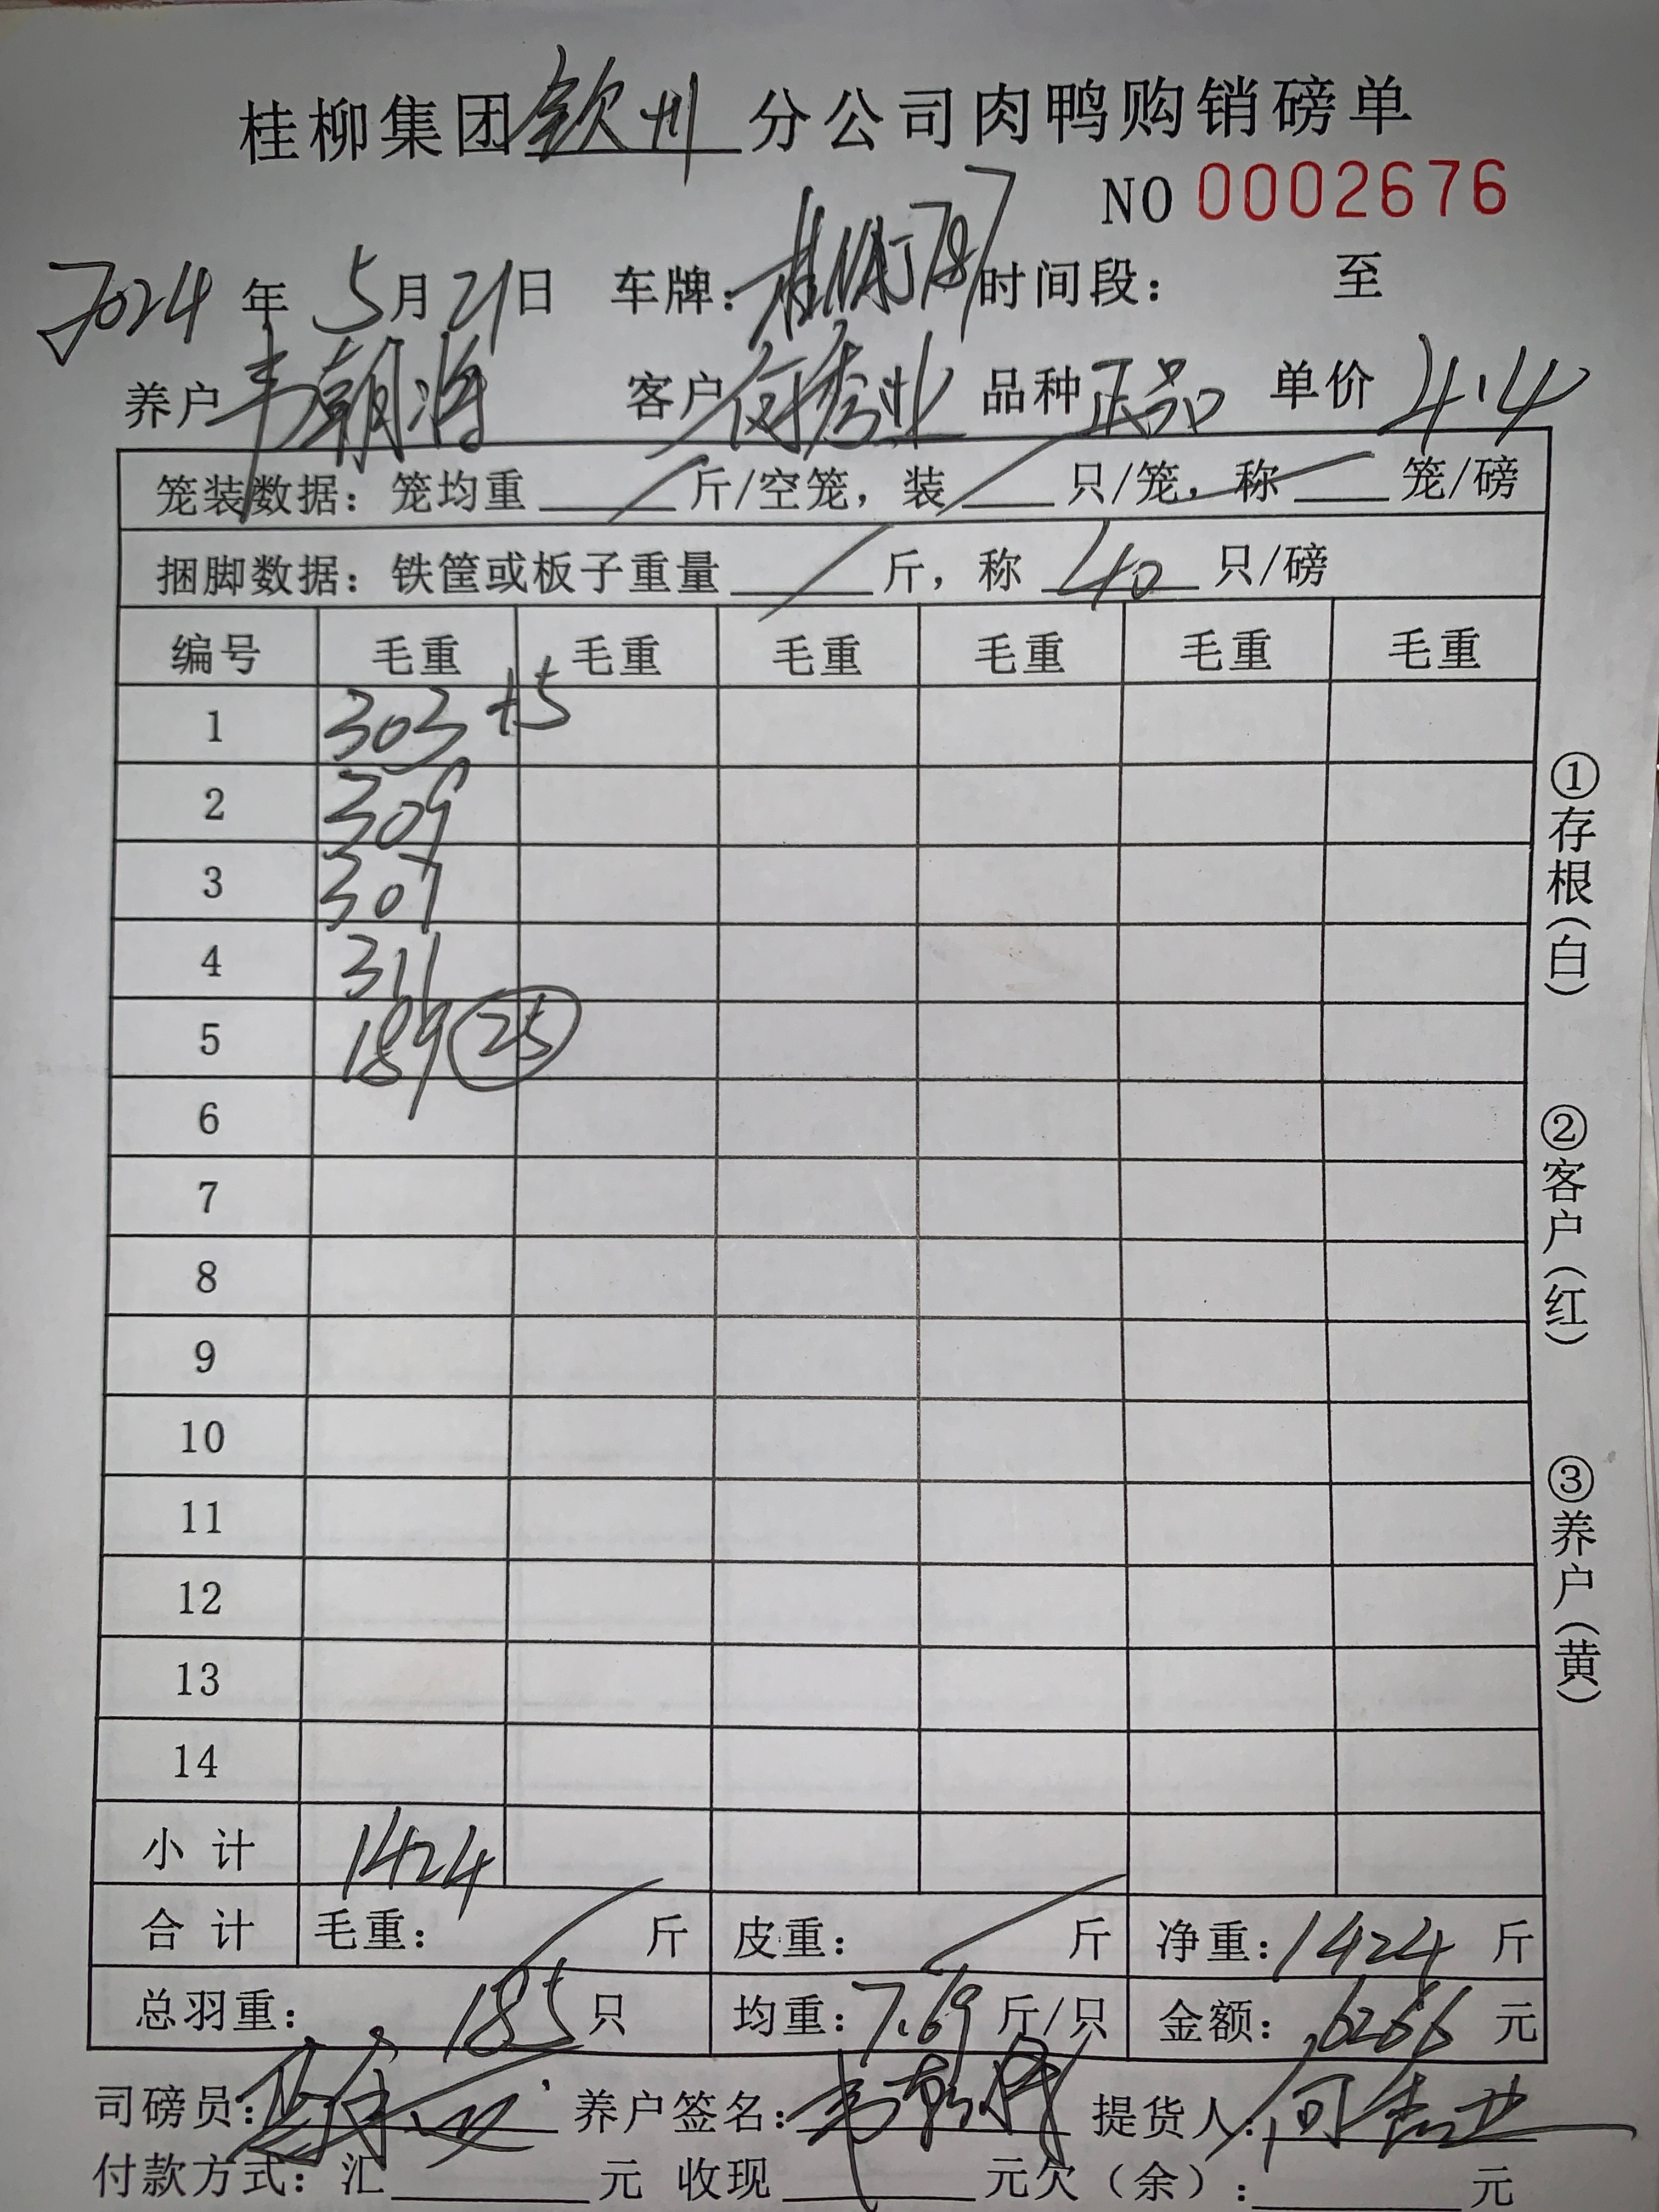 桂柳集团钦州分公司肉鸭购销磅单
NO 0002676
2024年5月21日 车牌：桂 787 时间段： 至
养户韦朝海 客户何秀业 品种正品 单价4.4
笼装数据：笼均重 斤/空笼，装 只/笼，称 笼/磅
捆脚数据：铁筐或板子重量 斤，称 40 只/磅
编号 毛重 毛重 毛重 毛重 毛重 毛重
1 303 +5
2 309
3 307
4 311
5 189 25
6
7
8
9
10
11
12
13
14
小计 1424
合计 毛重： 斤 皮重： 斤 净重：1424 斤
总羽重：185只 均重：7.69斤/只 金额：6266元
司磅员： 养户签名： 提货人：何秀业
付款方式：汇 元 收现 元欠（余）： 元
①存根（白）
②客户（红）
③养户（黄）